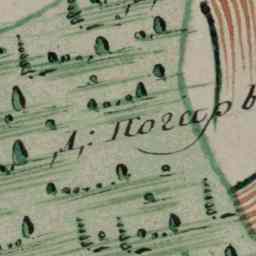 Д: Погар в